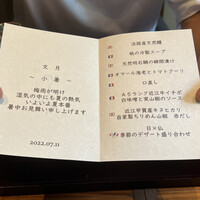 文月
~小暑~
梅雨が明け
湿気の中にも夏の熱気
いよいよ夏本番
暑中お見舞い申し上げます
2022.07.11
淡路産天然鱧
桃の冷製スープ
天然明石鯛の瞬間漬け
オマール海老とトマトアーリ
口直し
A5ランク近江牛イチボ
白味噌と実山椒のソース
近江甲賀産キヌヒカリ
自家製ちりめん山椒 赤だし
日×仏
季節のデザート盛り合わせ